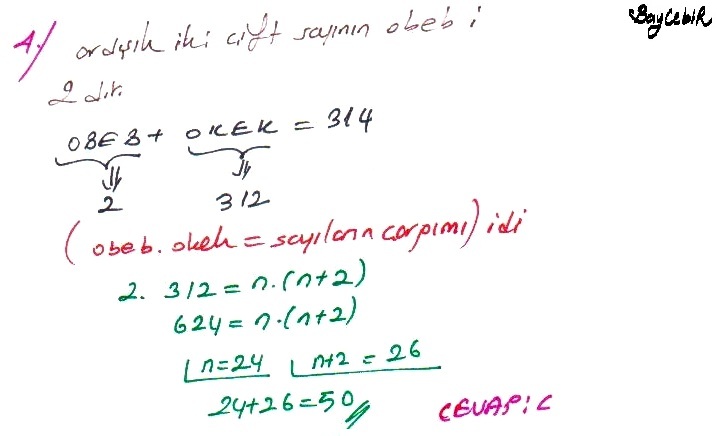 BayCebiR
4.) ardışık iki çift sayının obeb i
2 dir.
OBEB + OKEK = 314
2 312
(obeb. okek = sayıların çarpımı) idi
2. 312 = n.(n+2)
624 = n.(n+2)
n=24 n+2 = 26
24+26=50
CEVAP: C